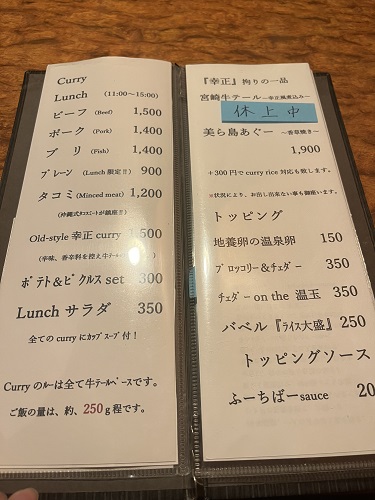 Curry
Lunch (11:00～15:00)
ビーフ (Beef) 1,500
ポーク (Pork) 1,400
ブリ (Fish) 1,400
プレーン (Lunch限定!!) 900
タコミ(Minced meat) 1,200
Old-style 幸正 curry 1,500
ポテト&ピクルス set 300
Lunch サラダ 350
全ての curry にカップスープ付!
Curry のルーは全て牛テールベースです。
ご飯の量は、約、250g 程です。
『幸正』拘りの一品
宮崎牛テール ～幸正風煮込み～
休止中
美ら島あぐー ～香草焼き～
1,900
+300円で curry rice 対応も致します。
※状況により、お出し出来ない事も御座います。
トッピング
地養卵の温泉卵 150
ブロッコリー&チェダー 350
チェダー on the 温玉 350
バベル『ライス大盛』250
トッピングソース
ふーちばー sauce 20